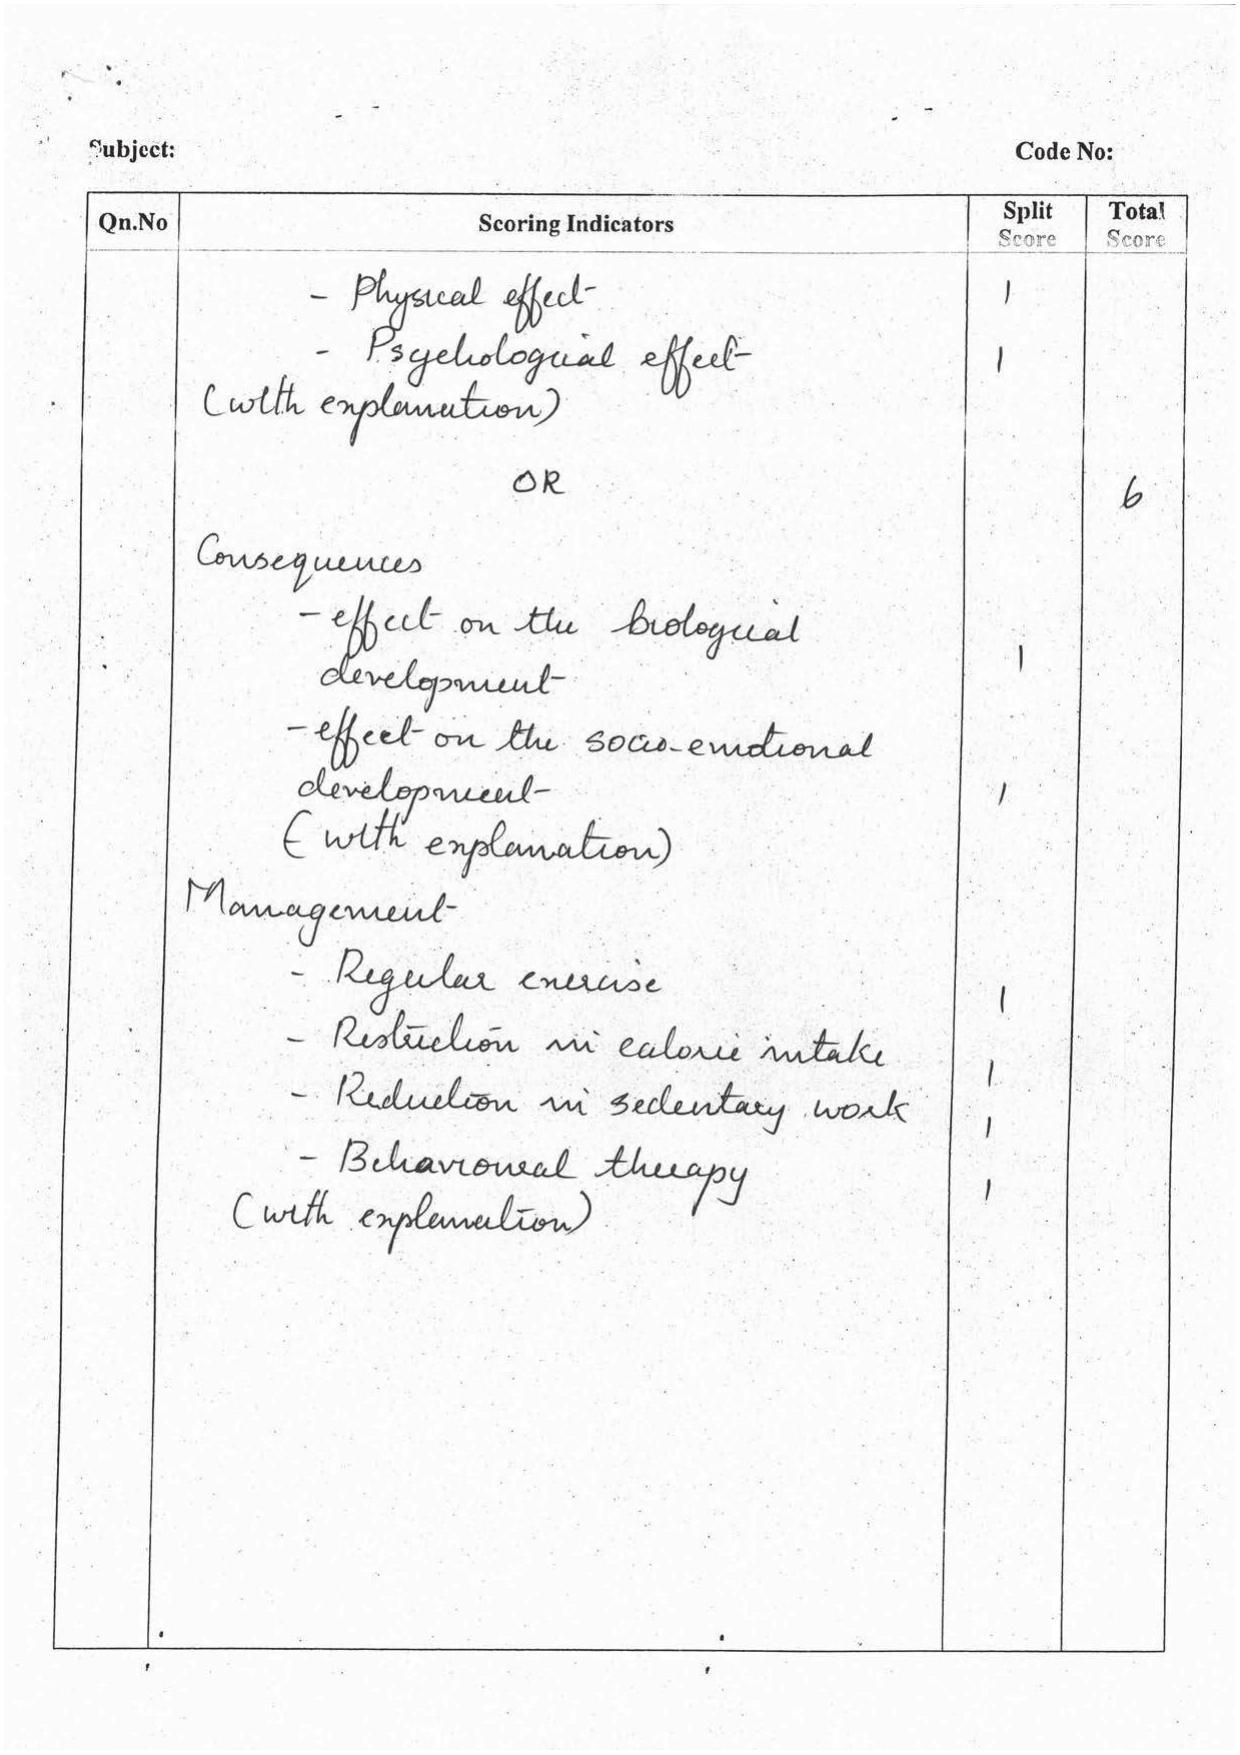 Subject:
Code No:
Qn.No
Scoring Indicators
Split Score
Total Score
- Physical effect 1
- Psychological effect 1
(with explanation)
OR
6
Consequences
- effect on the biological
development 1
- effect on the socio-emotional
development 1
(with explanation)
Management
- Regular exercise 1
- Restriction in calorie intake 1
- Reduction in sedentary work 1
- Behavioural therapy 1
(with explanation)